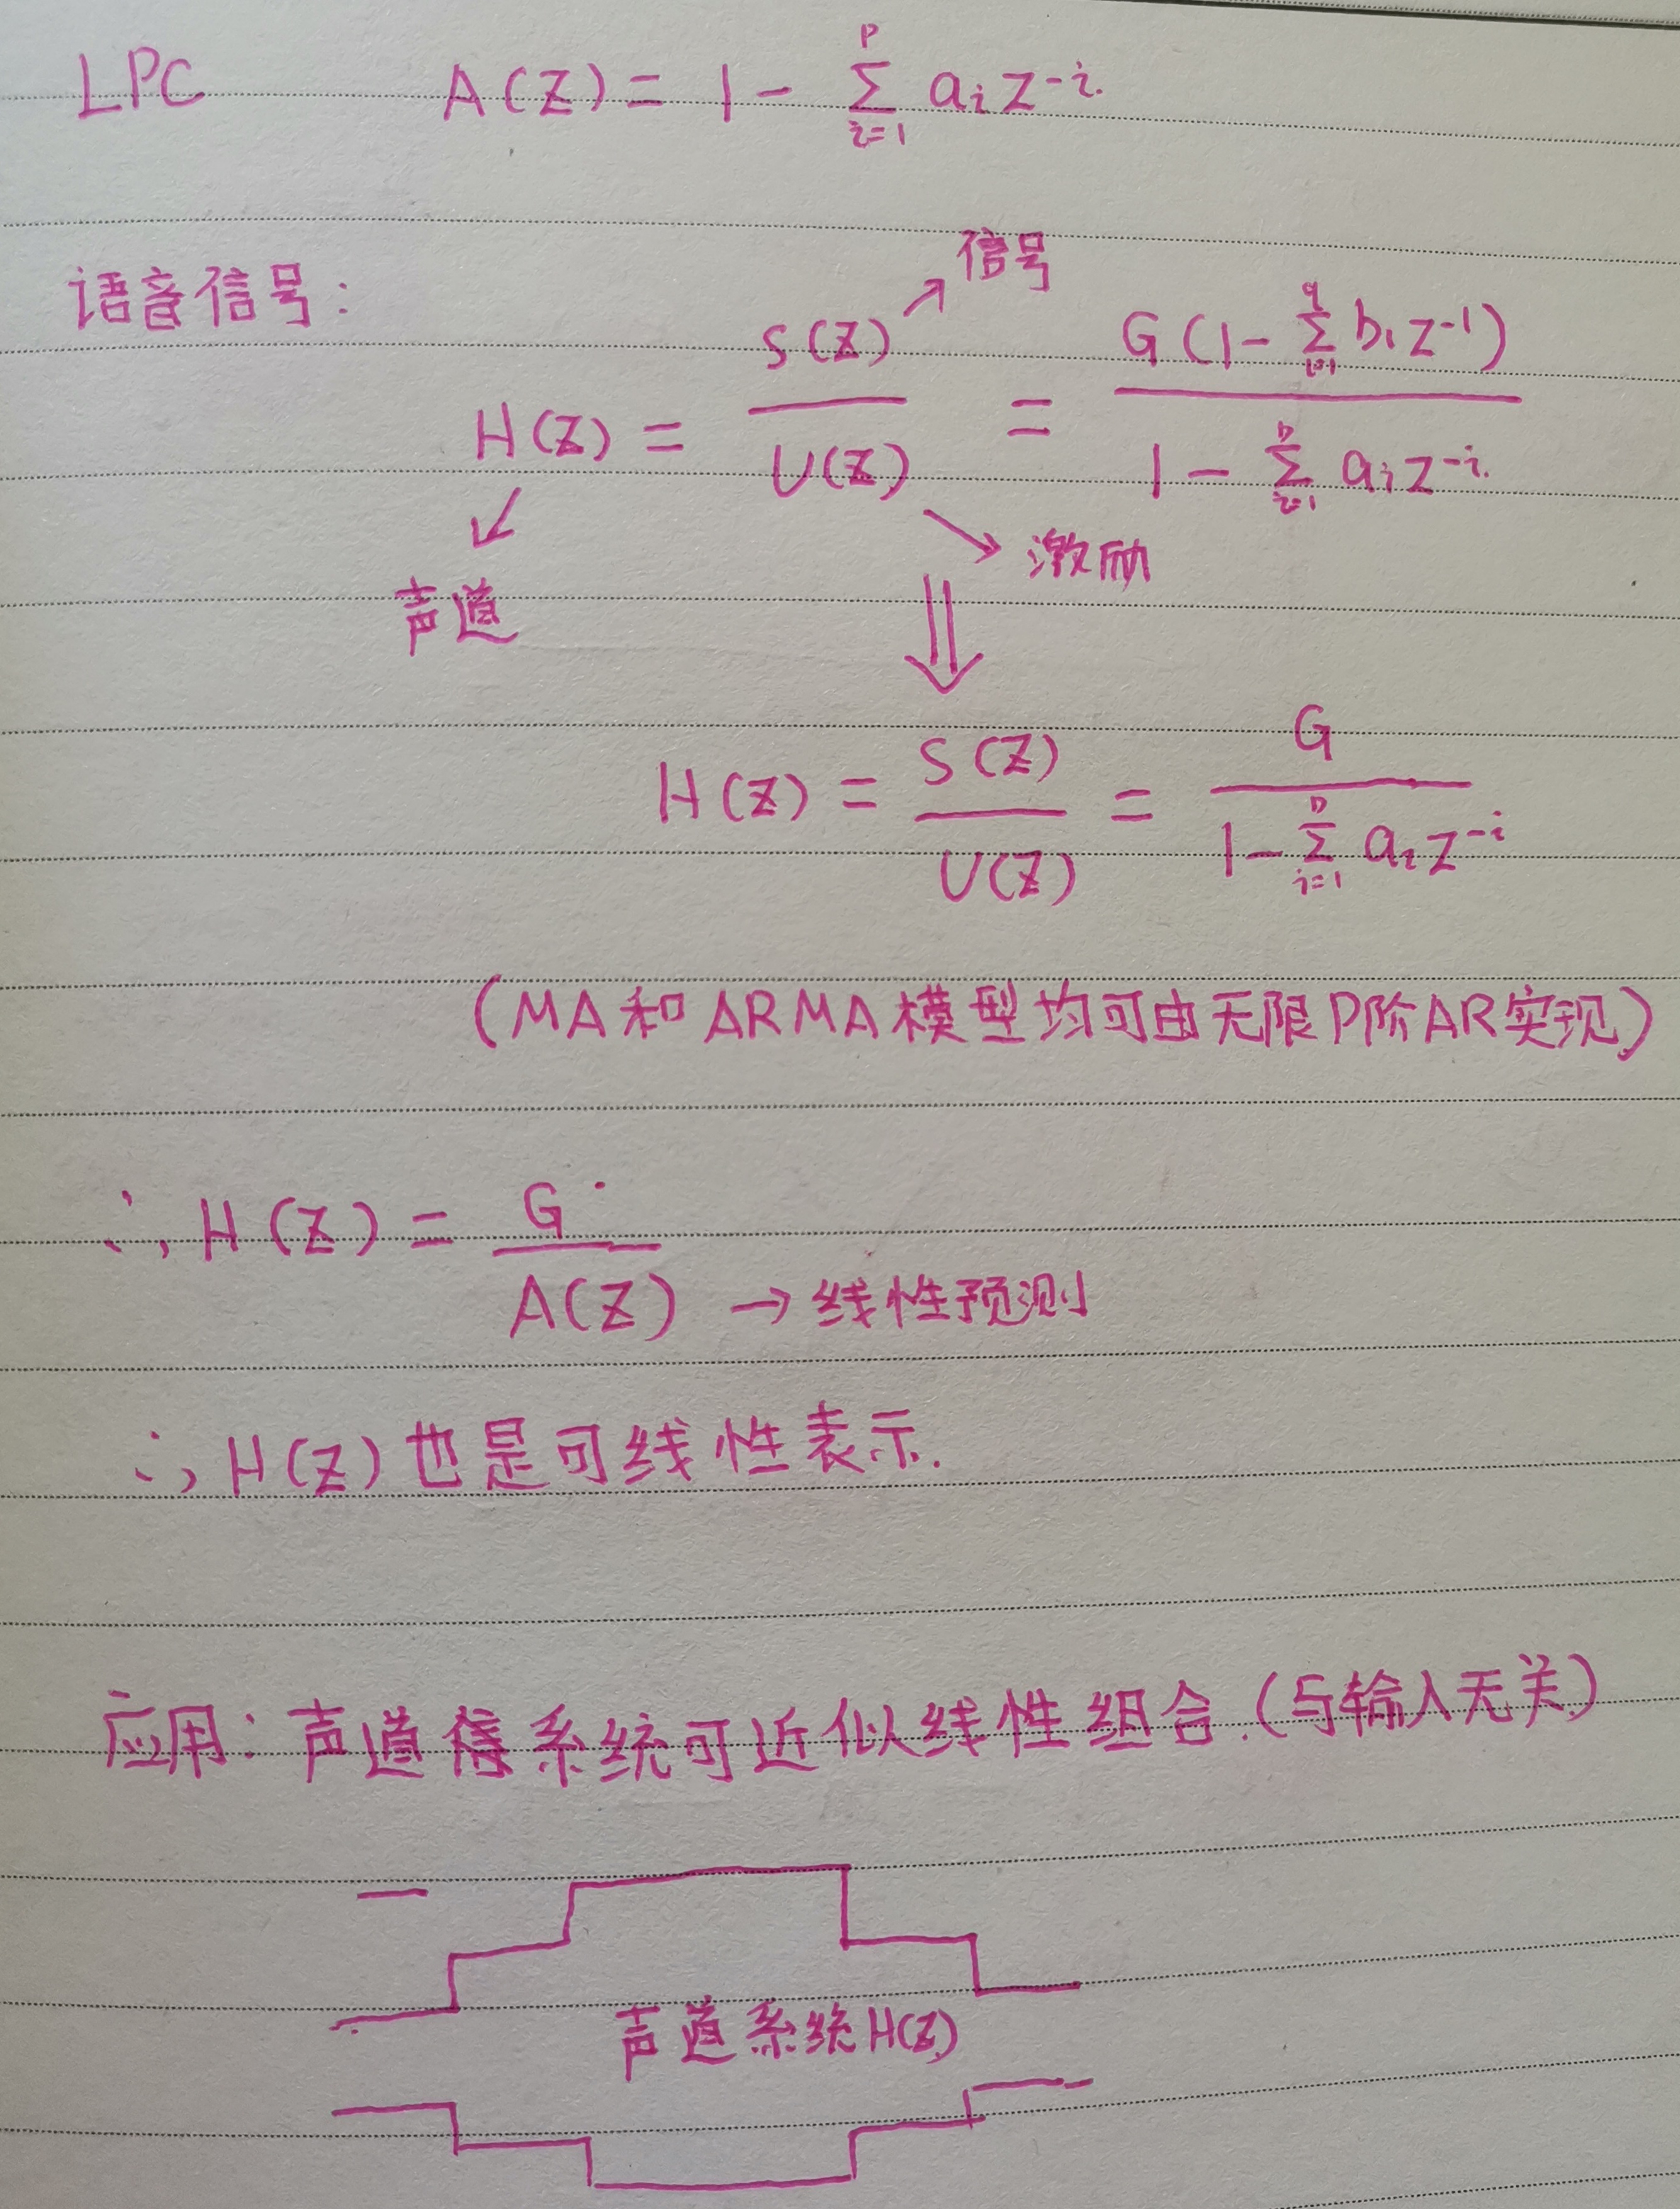 LPC A(Z) = 1 - \sum_{i=1}^{P} a_i z^{-i}.
语音信号:
H(Z) = \frac{S(Z)}{U(Z)} = \frac{G(1 - \sum_{i=1}^{q} b_i z^{-1})}{1 - \sum_{i=1}^{p} a_i z^{-i}}
信号
激励
声道
H(Z) = \frac{S(Z)}{U(Z)} = \frac{G}{1 - \sum_{i=1}^{p} a_i z^{-i}}
(MA和ARMA模型均可由无限P阶AR实现)
∴ H(Z) = \frac{G}{A(Z)} → 线性预测
∴ H(Z)也是可线性表示.
应用: 声道系统可近似线性组合.(与输入无关)
声道系统H(Z)